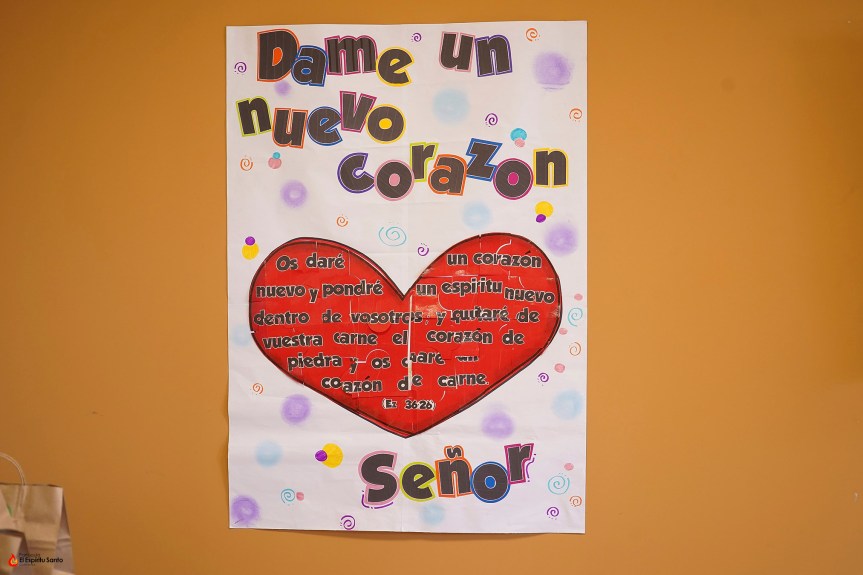 Dame un
nuevo
corazon
Os daré un corazón
nuevo y pondré un espiritu nuevo
dentro de vosotros, y quitaré de
vuestra carne el corazón de
piedra y os daré un
coazón de carne.
(Ez 36:26)
Señor
El Espíritu Santo